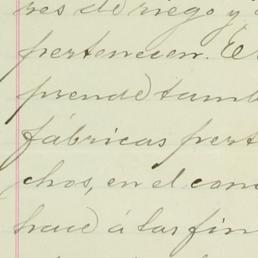 res de riego y
pertenecen. E
prende tamb
fábricas pert
chos, en el con
hace á las fin